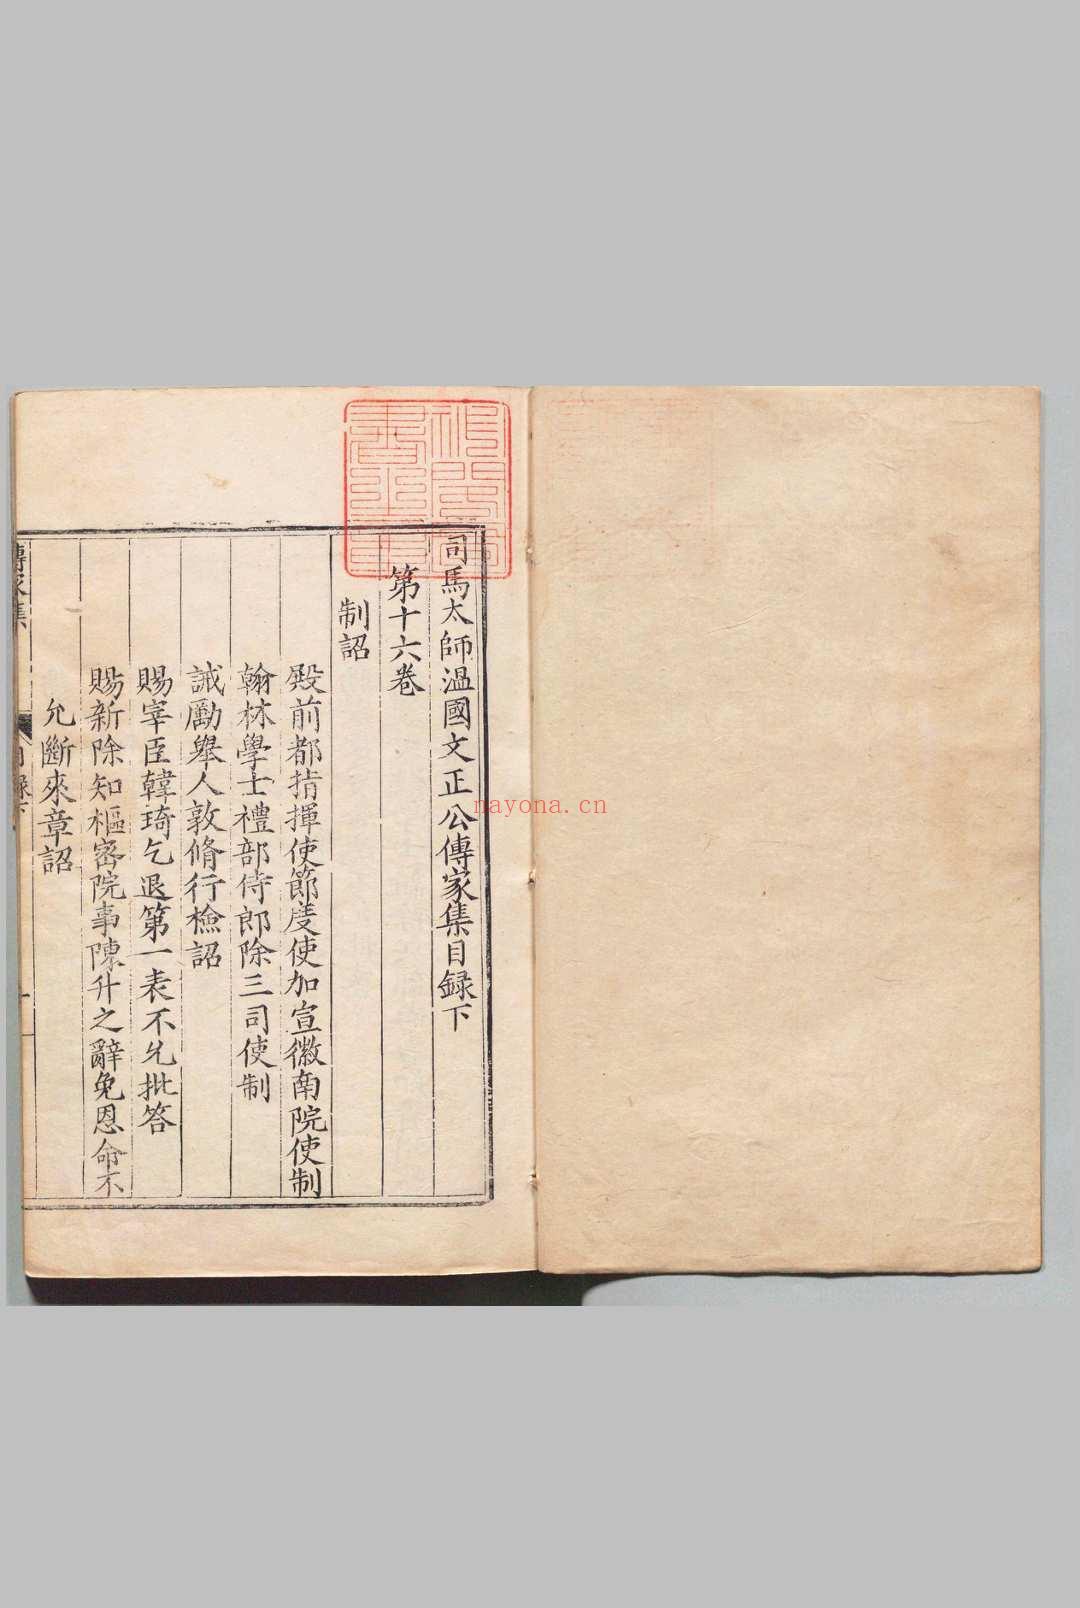 司馬太師溫國文正公傳家集目録下
第十六卷
制詔
殿前都指揮使節度使加宣徽南院使制
翰林學士禮部侍郎除三司使制
誡勵舉人敦脩行檢詔
賜宰臣韓琦乞退第一表不允批答
賜新除知樞密院事陳升之辭免恩命不
允斷來章詔
傳家集
目録下
一
nayona.cn